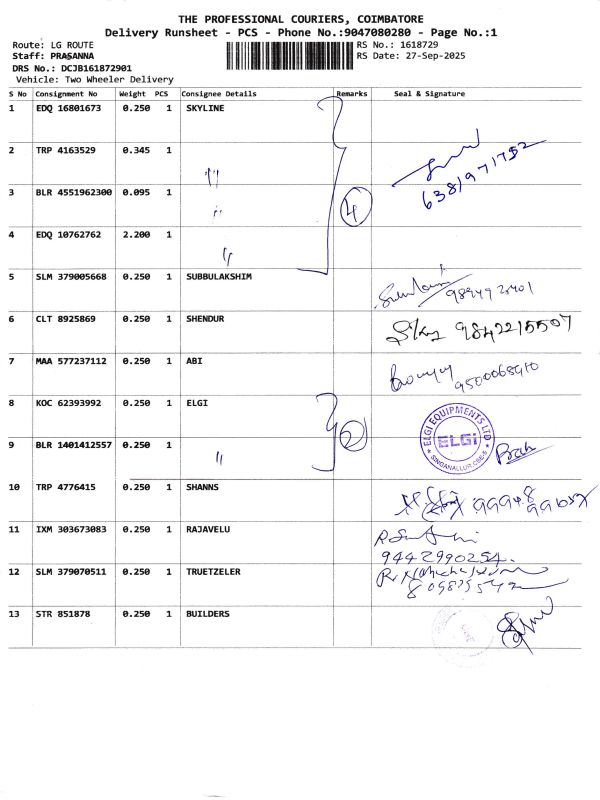 THE PROFESSIONAL COURIERS, COIMBATORE
Delivery Runsheet - PCS - Phone No.:9047080280 - Page No.:1
Route: LG ROUTE RS No.: 1618729
Staff: PRASANNA RS Date: 27-Sep-2025
DRS No.: DCJB161872901
Vehicle: Two Wheeler Delivery
S No Consignment No Weight PCS Consignee Details Remarks Seal & Signature
1 EDQ 16801673 0.250 1 SKYLINE
2 TRP 4163529 0.345 1 "
6381971752
3 BLR 4551962300 0.095 1 " 4
4 EDQ 10762762 2.200 1 "
5 SLM 379005668 0.250 1 SUBBULAKSHIM
6 CLT 8925869 0.250 1 SHENDUR 9842215507
7 MAA 577237112 0.250 1 ABI
9500068910
8 KOC 62393992 0.250 1 ELGI 2
ELGI EQUIPMENTS LTD
ELGi
SINGANALLUR, CBE-5
9 BLR 1401412557 0.250 1 "
10 TRP 4776415 0.250 1 SHANNS
11 IXM 303673083 0.250 1 RAJAVELU
9442990254.
12 SLM 379070511 0.250 1 TRUETZELER
13 STR 851878 0.250 1 BUILDERS